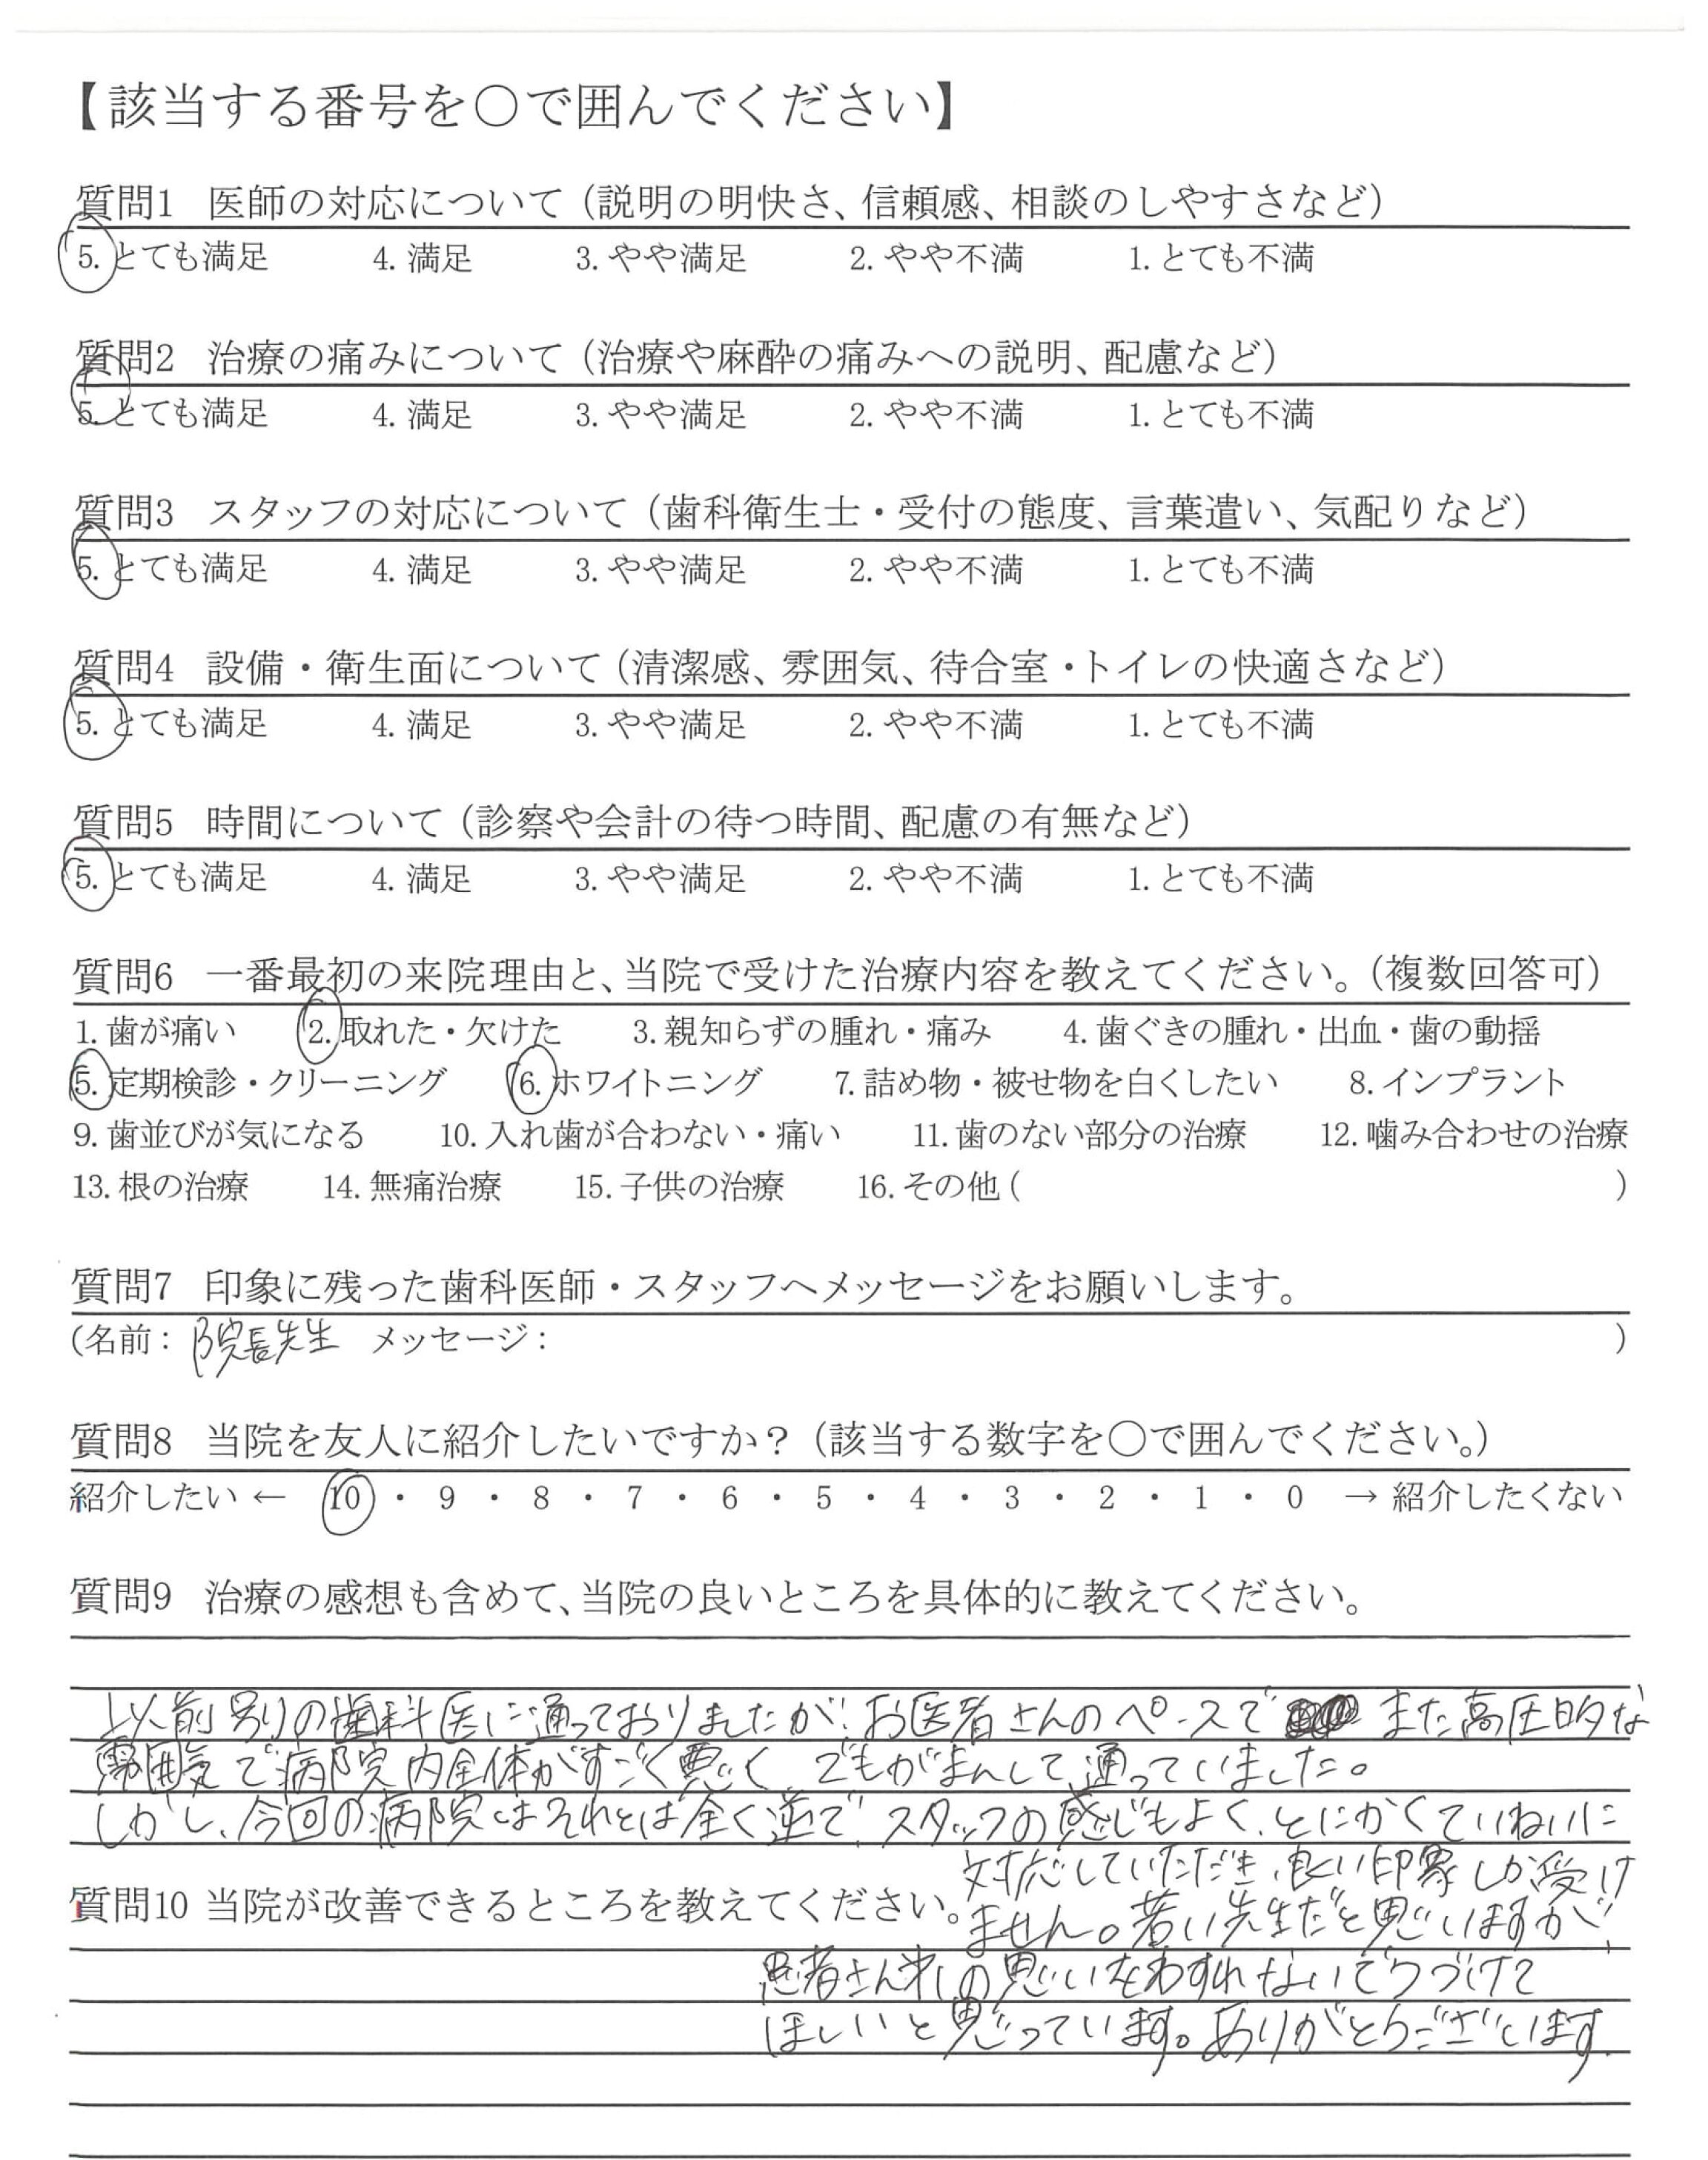 【該当する番号を○で囲んでください】
質問1 医師の対応について（説明の明快さ、信頼感、相談のしやすさなど）
5. とても満足 4. 満足 3. やや満足 2. やや不満 1. とても不満
質問2 治療の痛みについて（治療や麻酔の痛みへの説明、配慮など）
5. とても満足 4. 満足 3. やや満足 2. やや不満 1. とても不満
質問3 スタッフの対応について（歯科衛生士・受付の態度、言葉遣い、気配りなど）
5. とても満足 4. 満足 3. やや満足 2. やや不満 1. とても不満
質問4 設備・衛生面について（清潔感、雰囲気、待合室・トイレの快適さなど）
5. とても満足 4. 満足 3. やや満足 2. やや不満 1. とても不満
質問5 時間について（診察や会計の待つ時間、配慮の有無など）
5. とても満足 4. 満足 3. やや満足 2. やや不満 1. とても不満
質問6 一番最初の来院理由と、当院で受けた治療内容を教えてください。（複数回答可）
1. 歯が痛い 2. 取れた・欠けた 3. 親知らずの腫れ・痛み 4. 歯ぐきの腫れ・出血・歯の動揺
5. 定期検診・クリーニング 6. ホワイトニング 7. 詰め物・被せ物を白くしたい 8. インプラント
9. 歯並びが気になる 10. 入れ歯が合わない・痛い 11. 歯のない部分の治療 12. 噛み合わせの治療
13. 根の治療 14. 無痛治療 15. 子供の治療 16. その他（ ）
質問7 印象に残った歯科医師・スタッフへメッセージをお願いします。
（名前：院長先生 メッセージ： ）
質問8 当院を友人に紹介したいですか？（該当する数字を○で囲んでください。）
紹介したい ← 10 ・ 9 ・ 8 ・ 7 ・ 6 ・ 5 ・ 4 ・ 3 ・ 2 ・ 1 ・ 0 → 紹介したくない
質問9 治療の感想も含めて、当院の良いところを具体的に教えてください。
以前別りの歯科医に通っておりましたが、お医者さんのペースで また高圧的な
雰囲気で病院内全体がすごく悪く でもがまんして通っていました。
しかし、今回の病院はそれとは全く逆で、スタッフの感じもよく、とにかくていねいに
対応していただき、良い印象しか受け
質問10 当院が改善できるところを教えてください。
ません。若い先生だと思いますが、
患者さん の思いをわすれないでつづけて
ほしいと思っています。ありがとうございます。